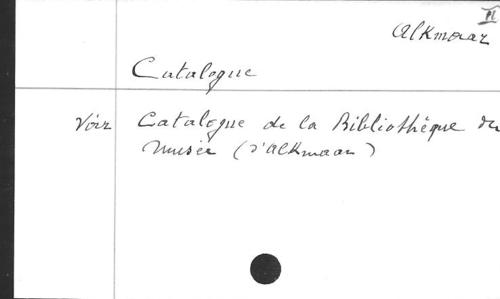 II
Alkmaar
Catalogue
Voir Catalogue de la Bibliothèque du
Musée (d'Alkmaar)